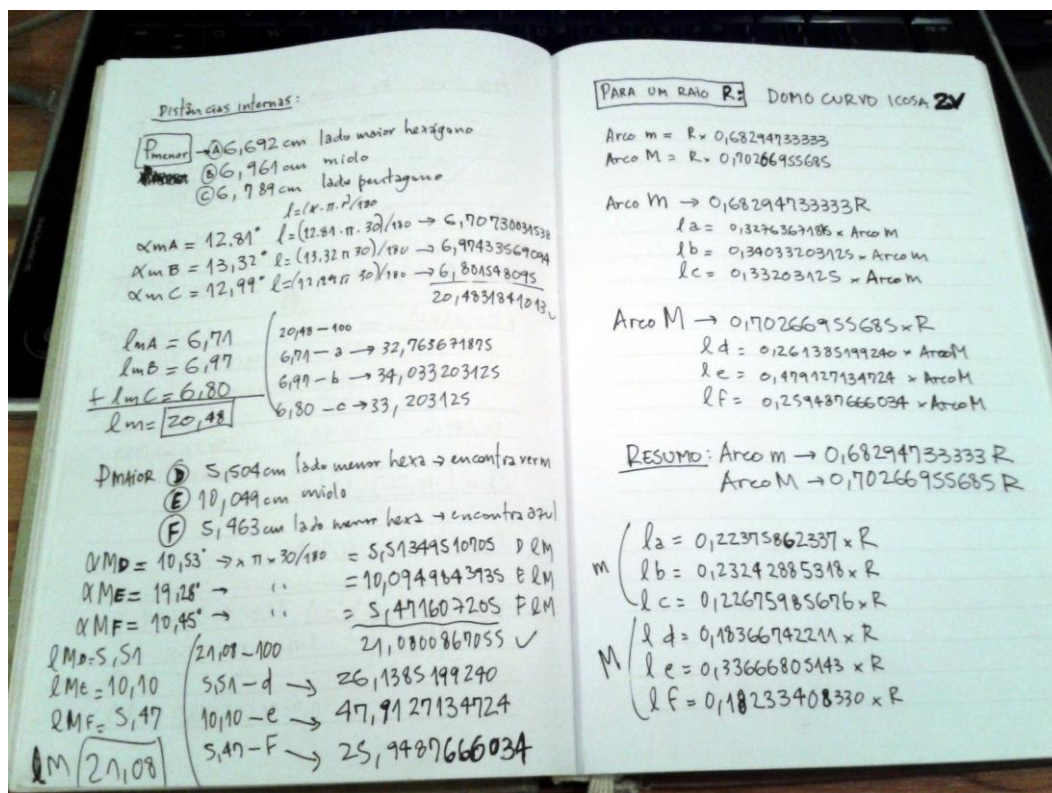 Distâncias internas:
Pmenor → Ⓐ 6,692 cm lado maior hexágono
Ⓑ 6,961 cm miolo
Ⓒ 6,789 cm lado pentagono
l=(α.π.r)/180
αmA = 12.81° l=(12.81.π.30)/180 → 6,70730031538
αmB = 13,32° l=(13,32 π 30)/180 → 6,97433569094
αmC = 12,99° l=(12,99 π 30)/180 → 6,801548095
20,4831841013 ✓
lmA = 6,71
lmB = 6,97
+ lmC = 6.80
lm = 20,48
20,48 – 100
6,71 – a → 32,763671875
6,97 – b → 34,033203125
6,80 – c → 33,203125
PMAIOR Ⓓ 5,504 cm lado menor hexa → encontra verm
Ⓔ 10,049 cm miolo
Ⓕ 5,463 cm lado menor hexa → encontra azul
αMD = 10,53° → x π x 30/180 = 5,51349510705 D lM
αME = 19,28° → '' = 10,0949843935 E lM
αMF = 10,45° → '' = 5,471607205 F lM
21,0800867055 ✓
lMD = 5,51
lME = 10,10
lMF = 5,47
lM 21,08
21,08 – 100
5,51 – d → 26,1385199240
10,10 – e → 47,9127134724
5,47 – F → 25,9487666034
PARA UM RAIO R: DOMO CURVO ICOSA 2V
Arco m = R x 0,68294733333
Arco M = R x 0,70266955685
Arco m → 0,68294733333R
la = 0,32763671875 x Arco m
lb = 0,34033203125 x Arco m
lc = 0,33203125 x Arco m
Arco M → 0,70266955685 x R
ld = 0,261385199240 x Arco M
le = 0,479127134724 x Arco M
lF = 0,259487666034 x Arco M
RESUMO: Arco m → 0,68294733333 R
Arco M → 0,70266955685 R
m
la = 0,22375862337 x R
lb = 0,23242885318 x R
lc = 0,22675985676 x R
M
ld = 0,18366742211 x R
le = 0,33666805143 x R
lF = 0,18233408330 x R